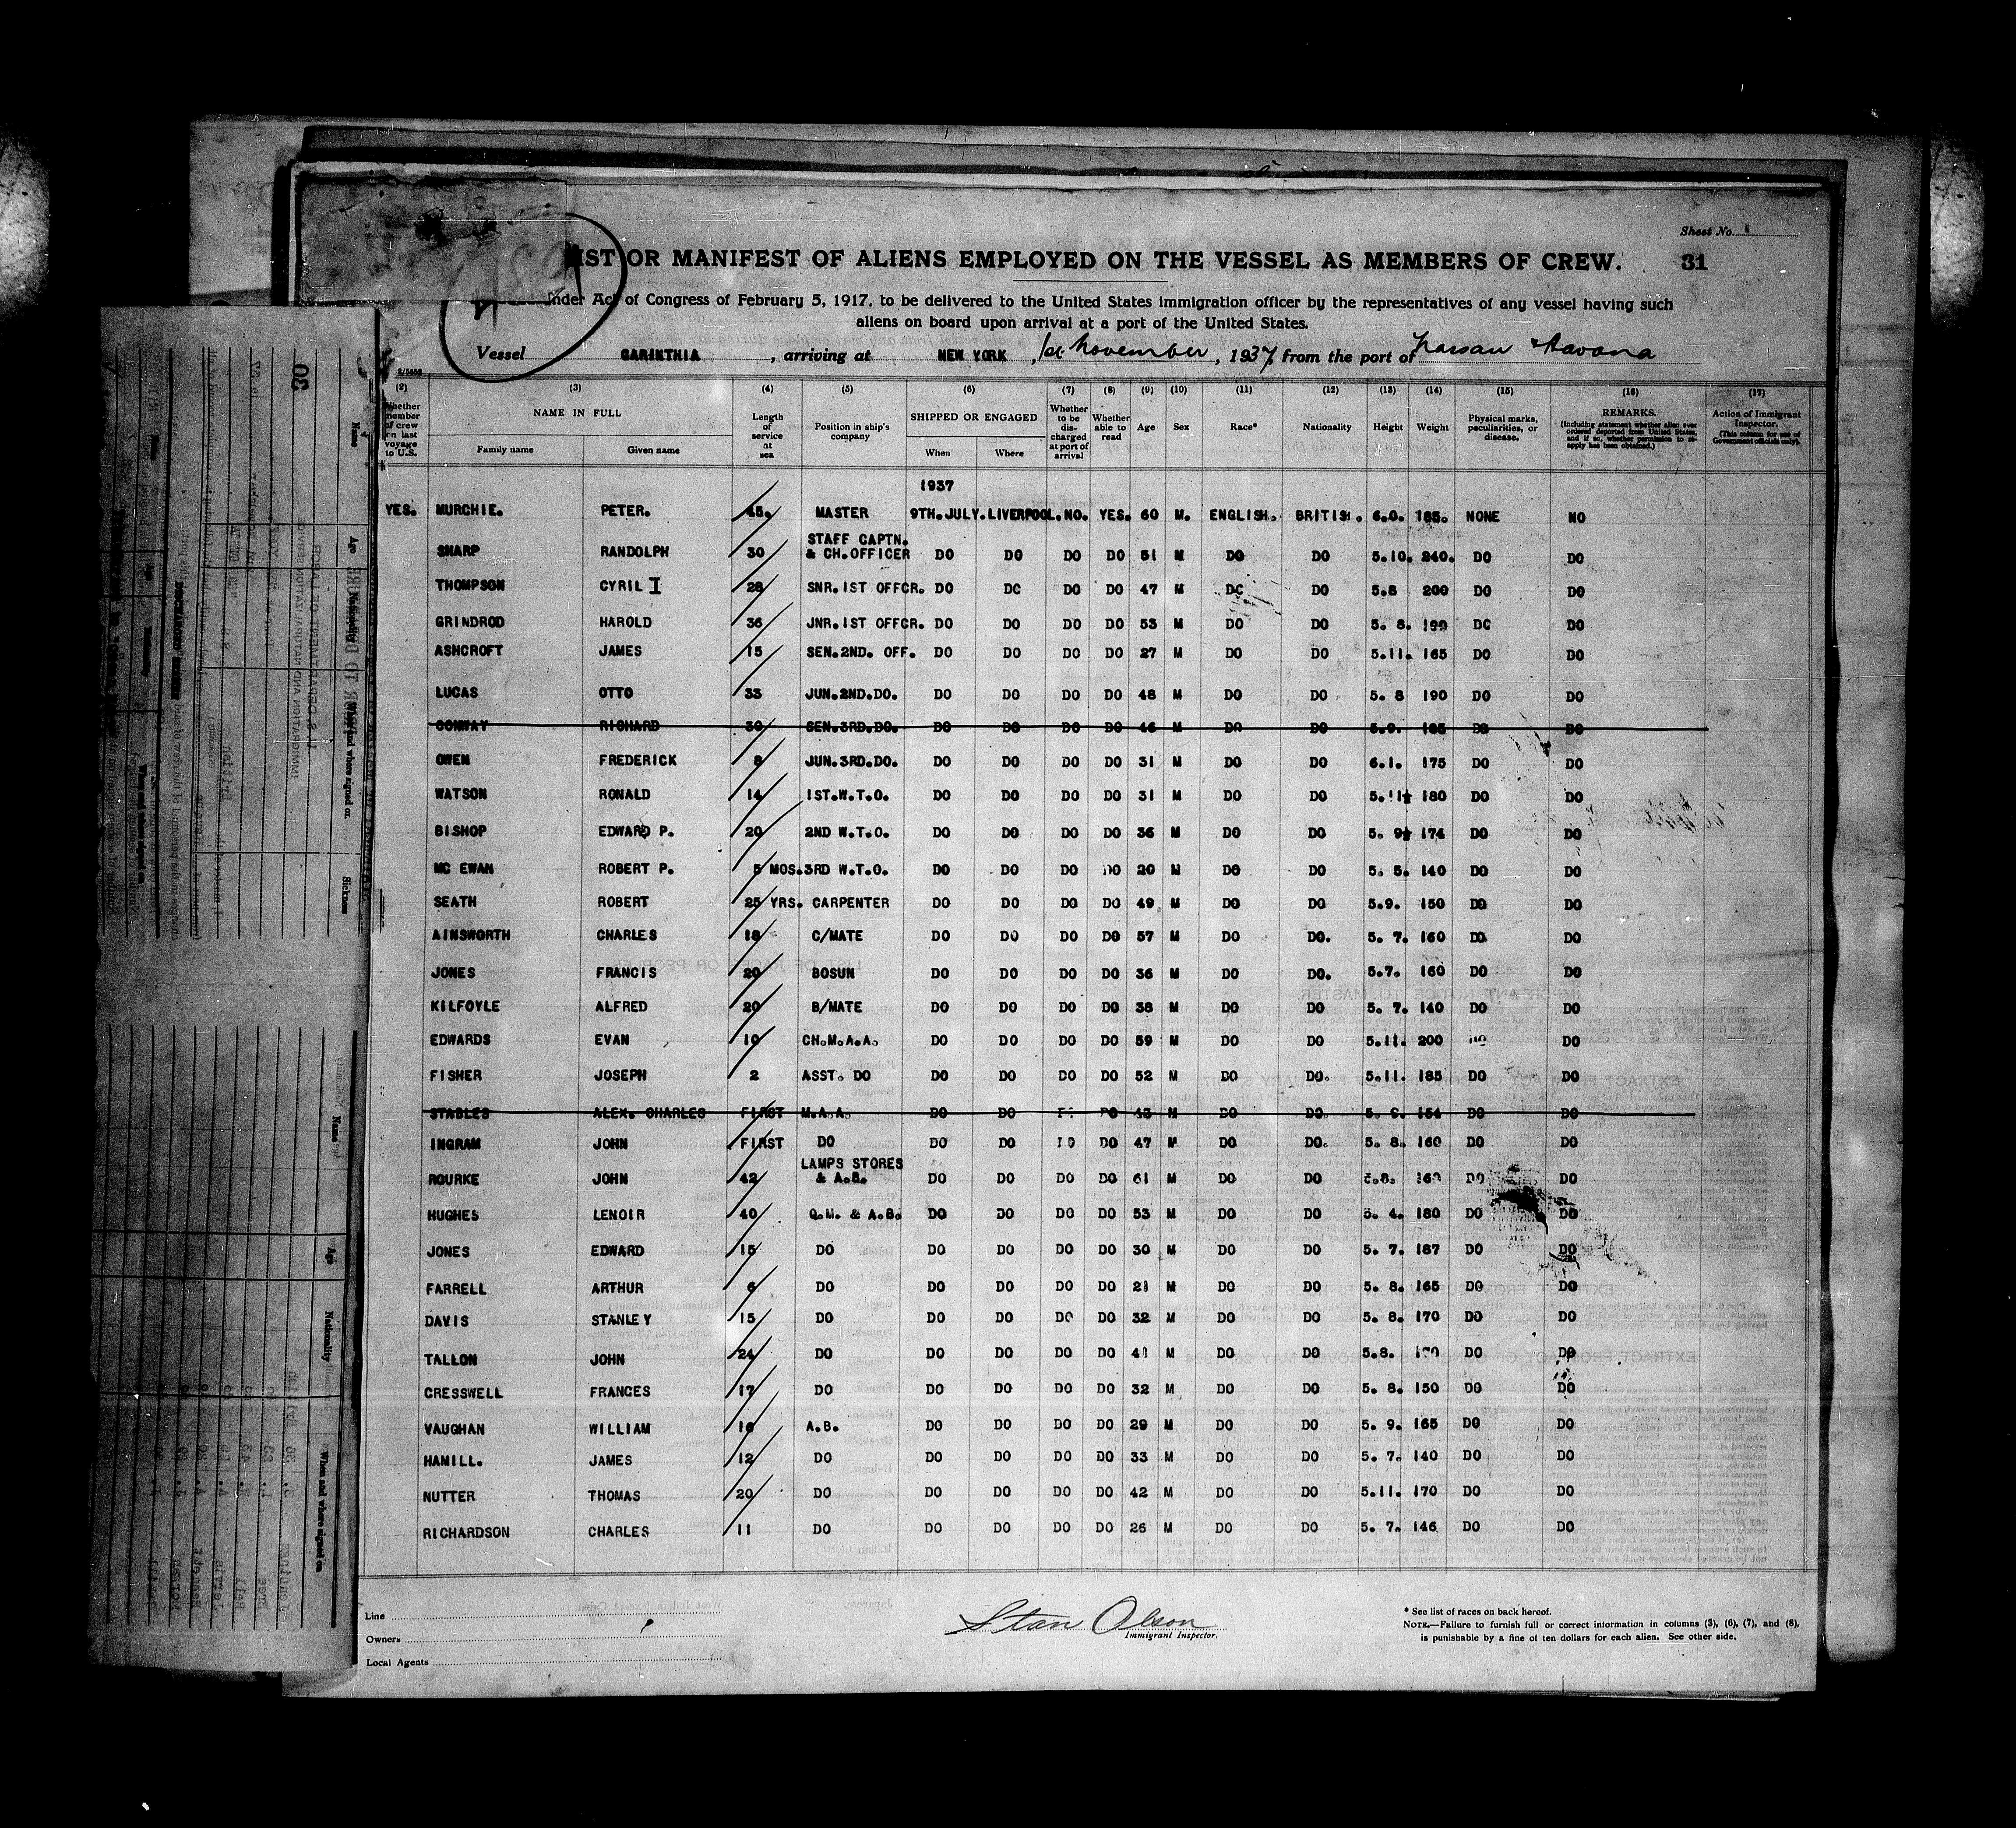 Sheet No. 1
LIST OR MANIFEST OF ALIENS EMPLOYED ON THE VESSEL AS MEMBERS OF CREW. 31
Under Act of Congress of February 5, 1917, to be delivered to the United States immigration officer by the representatives of any vessel having such
aliens on board upon arrival at a port of the United States.
Vessel CARINTHIA, arriving at NEW YORK, 1st November, 1937, from the port of Nassau & Havana
(2) (3) (4) (5) (6) (7) (8) (9) (10) (11) (12) (13) (14) (15) (16) (17)
Whether member of crew on last voyage to U.S. NAME IN FULL Family name Given name Length of service at sea Position in ship's company SHIPPED OR ENGAGED When Where Whether to be discharged at port of arrival Whether able to read Age Sex Race* Nationality Height Weight Physical marks, peculiarities, or disease. REMARKS. (Including statement whether alien ever ordered deported from United States, and if so, whether permission to reapply has been obtained.) Action of Immigrant Inspector. (This column for use of Government officials only).
1937
YES. MURCHIE. PETER. 45. MASTER 9TH.JULY.LIVERPOOL.NO. YES. 60 M. ENGLISH. BRITISH. 6.0. 185. NONE NO
SHARP RANDOLPH 30 STAFF CAPTN. & CH.OFFICER DO DO DO DO 51 M DO DO 5.10. 240. DO DO
THOMPSON CYRIL I 28 SNR.1ST OFFCR. DO DO DO DO 47 M DO DO 5.8 200 DO DO
GRINDROD HAROLD 36 JNR.1ST OFFCR. DO DO DO DO 53 M DO DO 5. 8. 190 DO DO
ASHCROFT JAMES 15 SEN.2ND. OFF. DO DO DO DO 27 M DO DO 5.11. 165 DO DO
LUCAS OTTO 33 JUN.2ND.DO. DO DO DO DO 48 M DO DO 5. 8 190 DO DO
CONWAY RICHARD 30 SEN.3RD.DO. DO DO DO DO 46 M DO DO 5.9. 185 DO DO
OWEN FREDERICK 8 JUN.3RD.DO. DO DO DO DO 31 M DO DO 6.1. 175 DO DO
WATSON RONALD 14 1ST.W.T.O. DO DO DO DO 31 M DO DO 5.11½ 180 DO DO
BISHOP EDWARD P. 20 2ND W.T.O. DO DO DO DO 36 M DO DO 5. 9½ 174 DO DO
MC EWAN ROBERT P. 5 MOS. 3RD W.T.O. DO DO DO DO 20 M DO DO 5. 5. 140 DO DO
SEATH ROBERT 25 YRS. CARPENTER DO DO DO DO 49 M DO DO 5.9. 150 DO DO
AINSWORTH CHARLES 18 C/MATE DO DO DO DO 57 M DO DO. 5. 7. 160 DO DO
JONES FRANCIS 20 BOSUN DO DO DO DO 36 M DO DO. 5.7. 160 DO DO
KILFOYLE ALFRED 20 B/MATE DO DO DO DO 38 M DO DO 5. 7. 140 DO DO
EDWARDS EVAN 10 CH.M.A.A. DO DO DO DO 59 M DO DO 5.11. 200 DO DO
FISHER JOSEPH 2 ASST. DO DO DO DO DO 52 M DO DO. 5.11. 185 DO DO
STABLES ALEX. CHARLES FIRST M.A.A. DO DO DO DO 43 M DO DO. 164 DO DO
INGRAM JOHN FIRST DO DO DO DO DO 47 M DO DO. 5. 8. 160 DO DO
ROURKE JOHN 42 LAMPS STORES & A.B. DO DO DO DO 61 M DO DO 5.8. 160 DO DO
HUGHES LENOIR 40 Q.M. & A.B. DO DO DO DO 53 M DO DO 5. 4. 180 DO DO
JONES EDWARD 15 DO DO DO DO DO 30 M DO DO 5. 7. 187 DO DO
FARRELL ARTHUR 6 DO DO DO DO DO 21 M DO DO 5. 8. 165 DO DO
DAVIS STANLEY 15 DO DO DO DO DO 32 M DO DO 5. 8. 170 DO DO
TALLON JOHN 24 DO DO DO DO DO 41 M DO DO 5.8. DO DO
CRESSWELL FRANCES 17 DO DO DO DO DO 32 M DO DO 5. 8. 150 DO DO
VAUGHAN WILLIAM 16 A.B. DO DO DO DO 29 M DO DO 5. 9. 165 DO DO
HAMILL. JAMES 12 DO DO DO DO DO 33 M DO DO 5. 7. 140 DO DO
NUTTER THOMAS 20 DO DO DO DO DO 42 M DO DO 5.11. 170 DO DO
RICHARDSON CHARLES 11 DO DO DO DO DO 26 M DO DO 5. 7. 146 DO DO
Line
Owners
Local Agents
Stan Olson
Immigrant Inspector.
* See list of races on back hereof.
NOTE.—Failure to furnish full or correct information in columns (3), (6), (7), and (8),
is punishable by a fine of ten dollars for each alien. See other side.
30